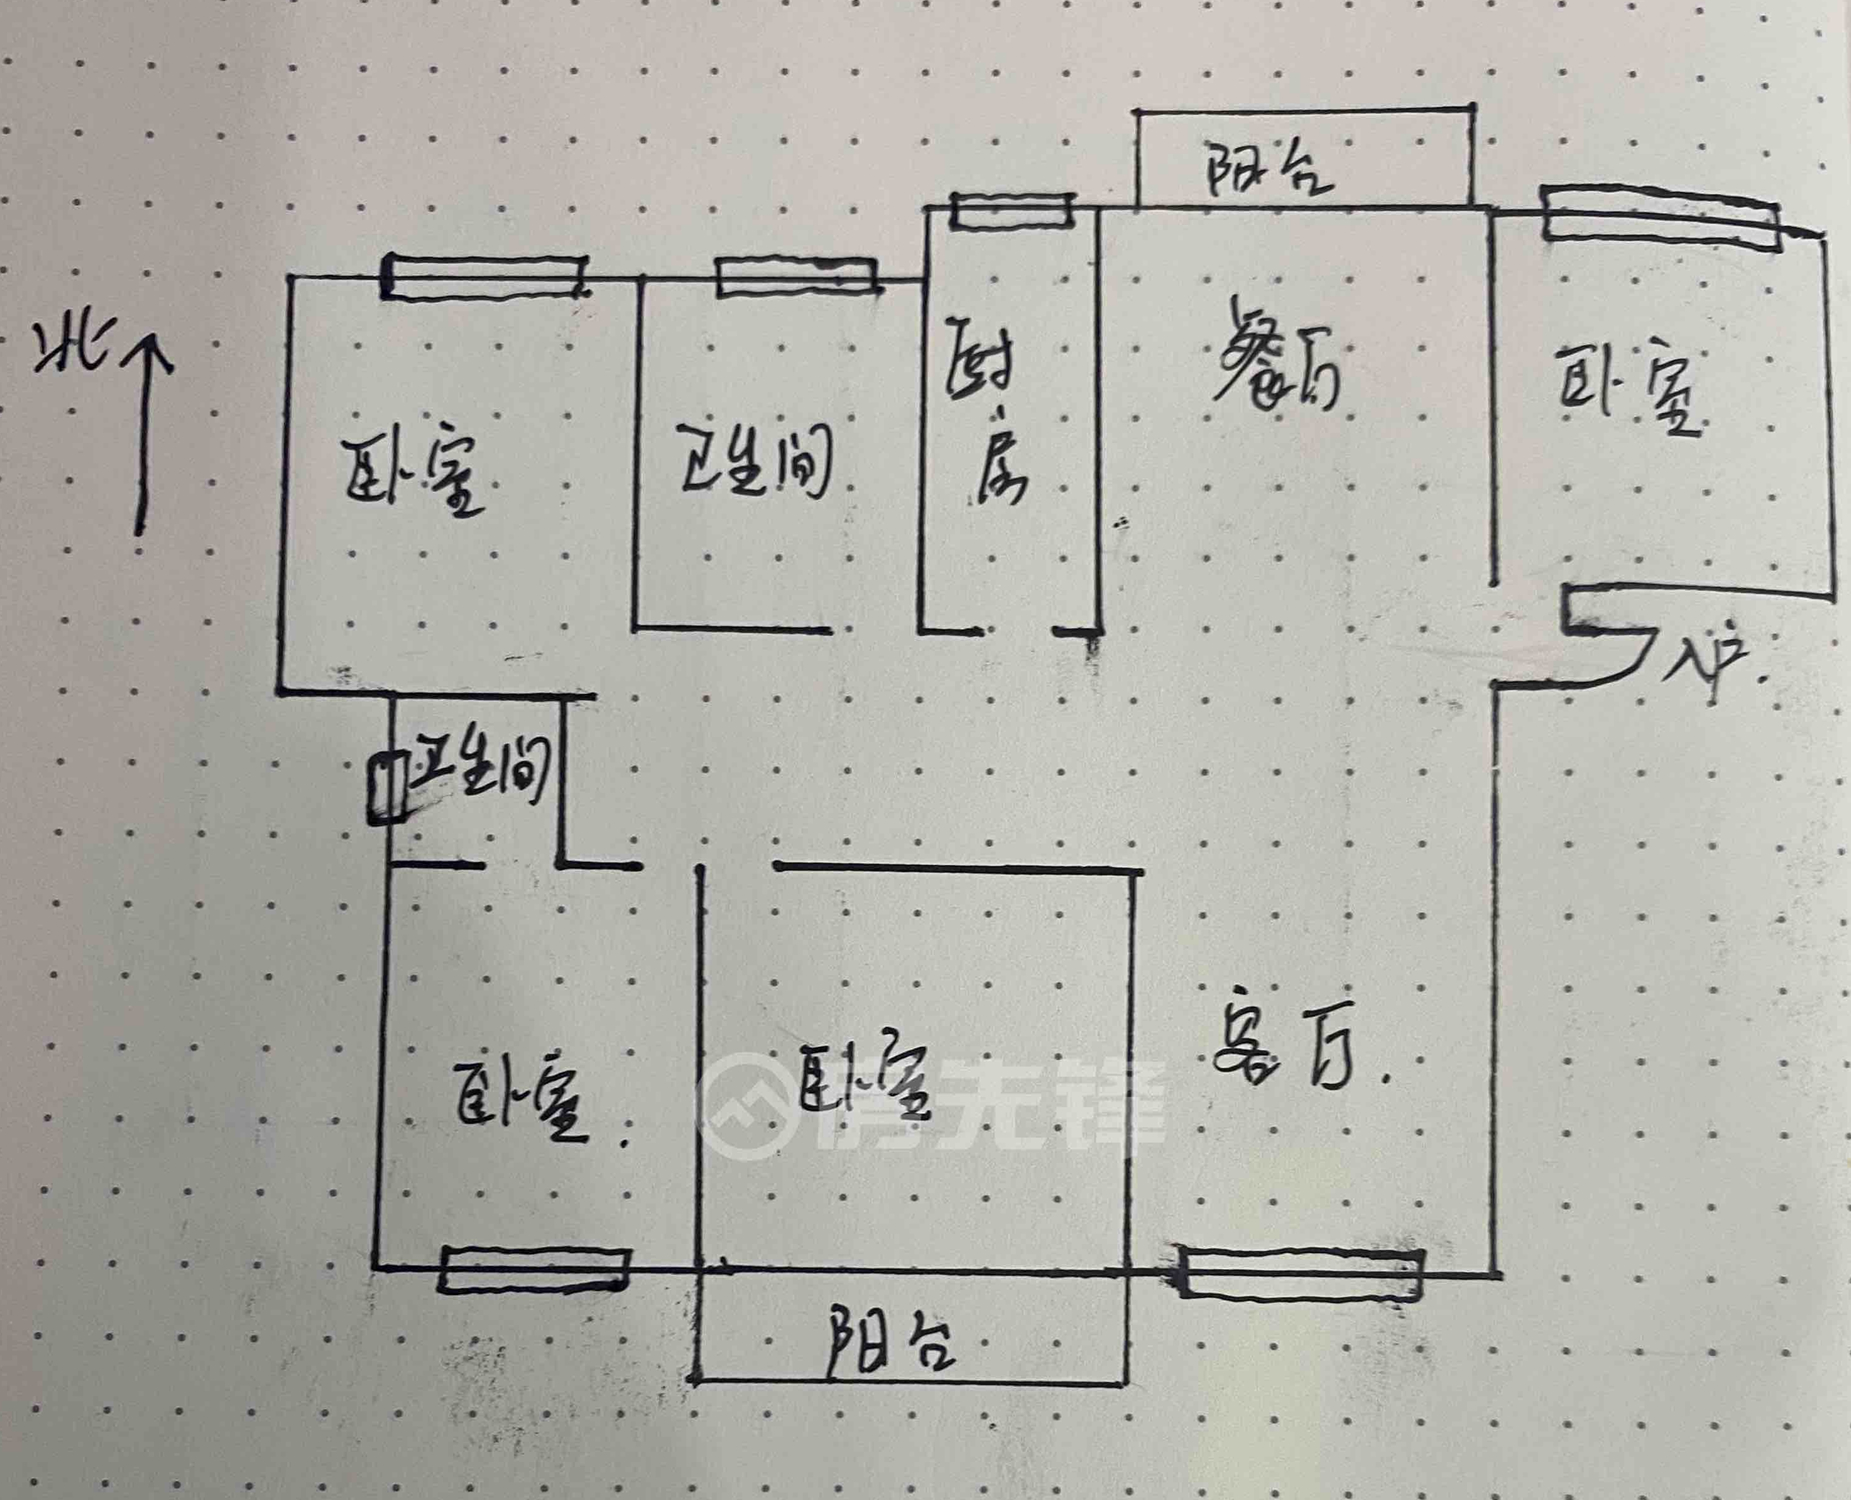 阳台
北
厨房
餐厅
卧室
卧室
卫生间
入户.
卫生间
客厅.
卧室.
卧室
房先锋
阳台